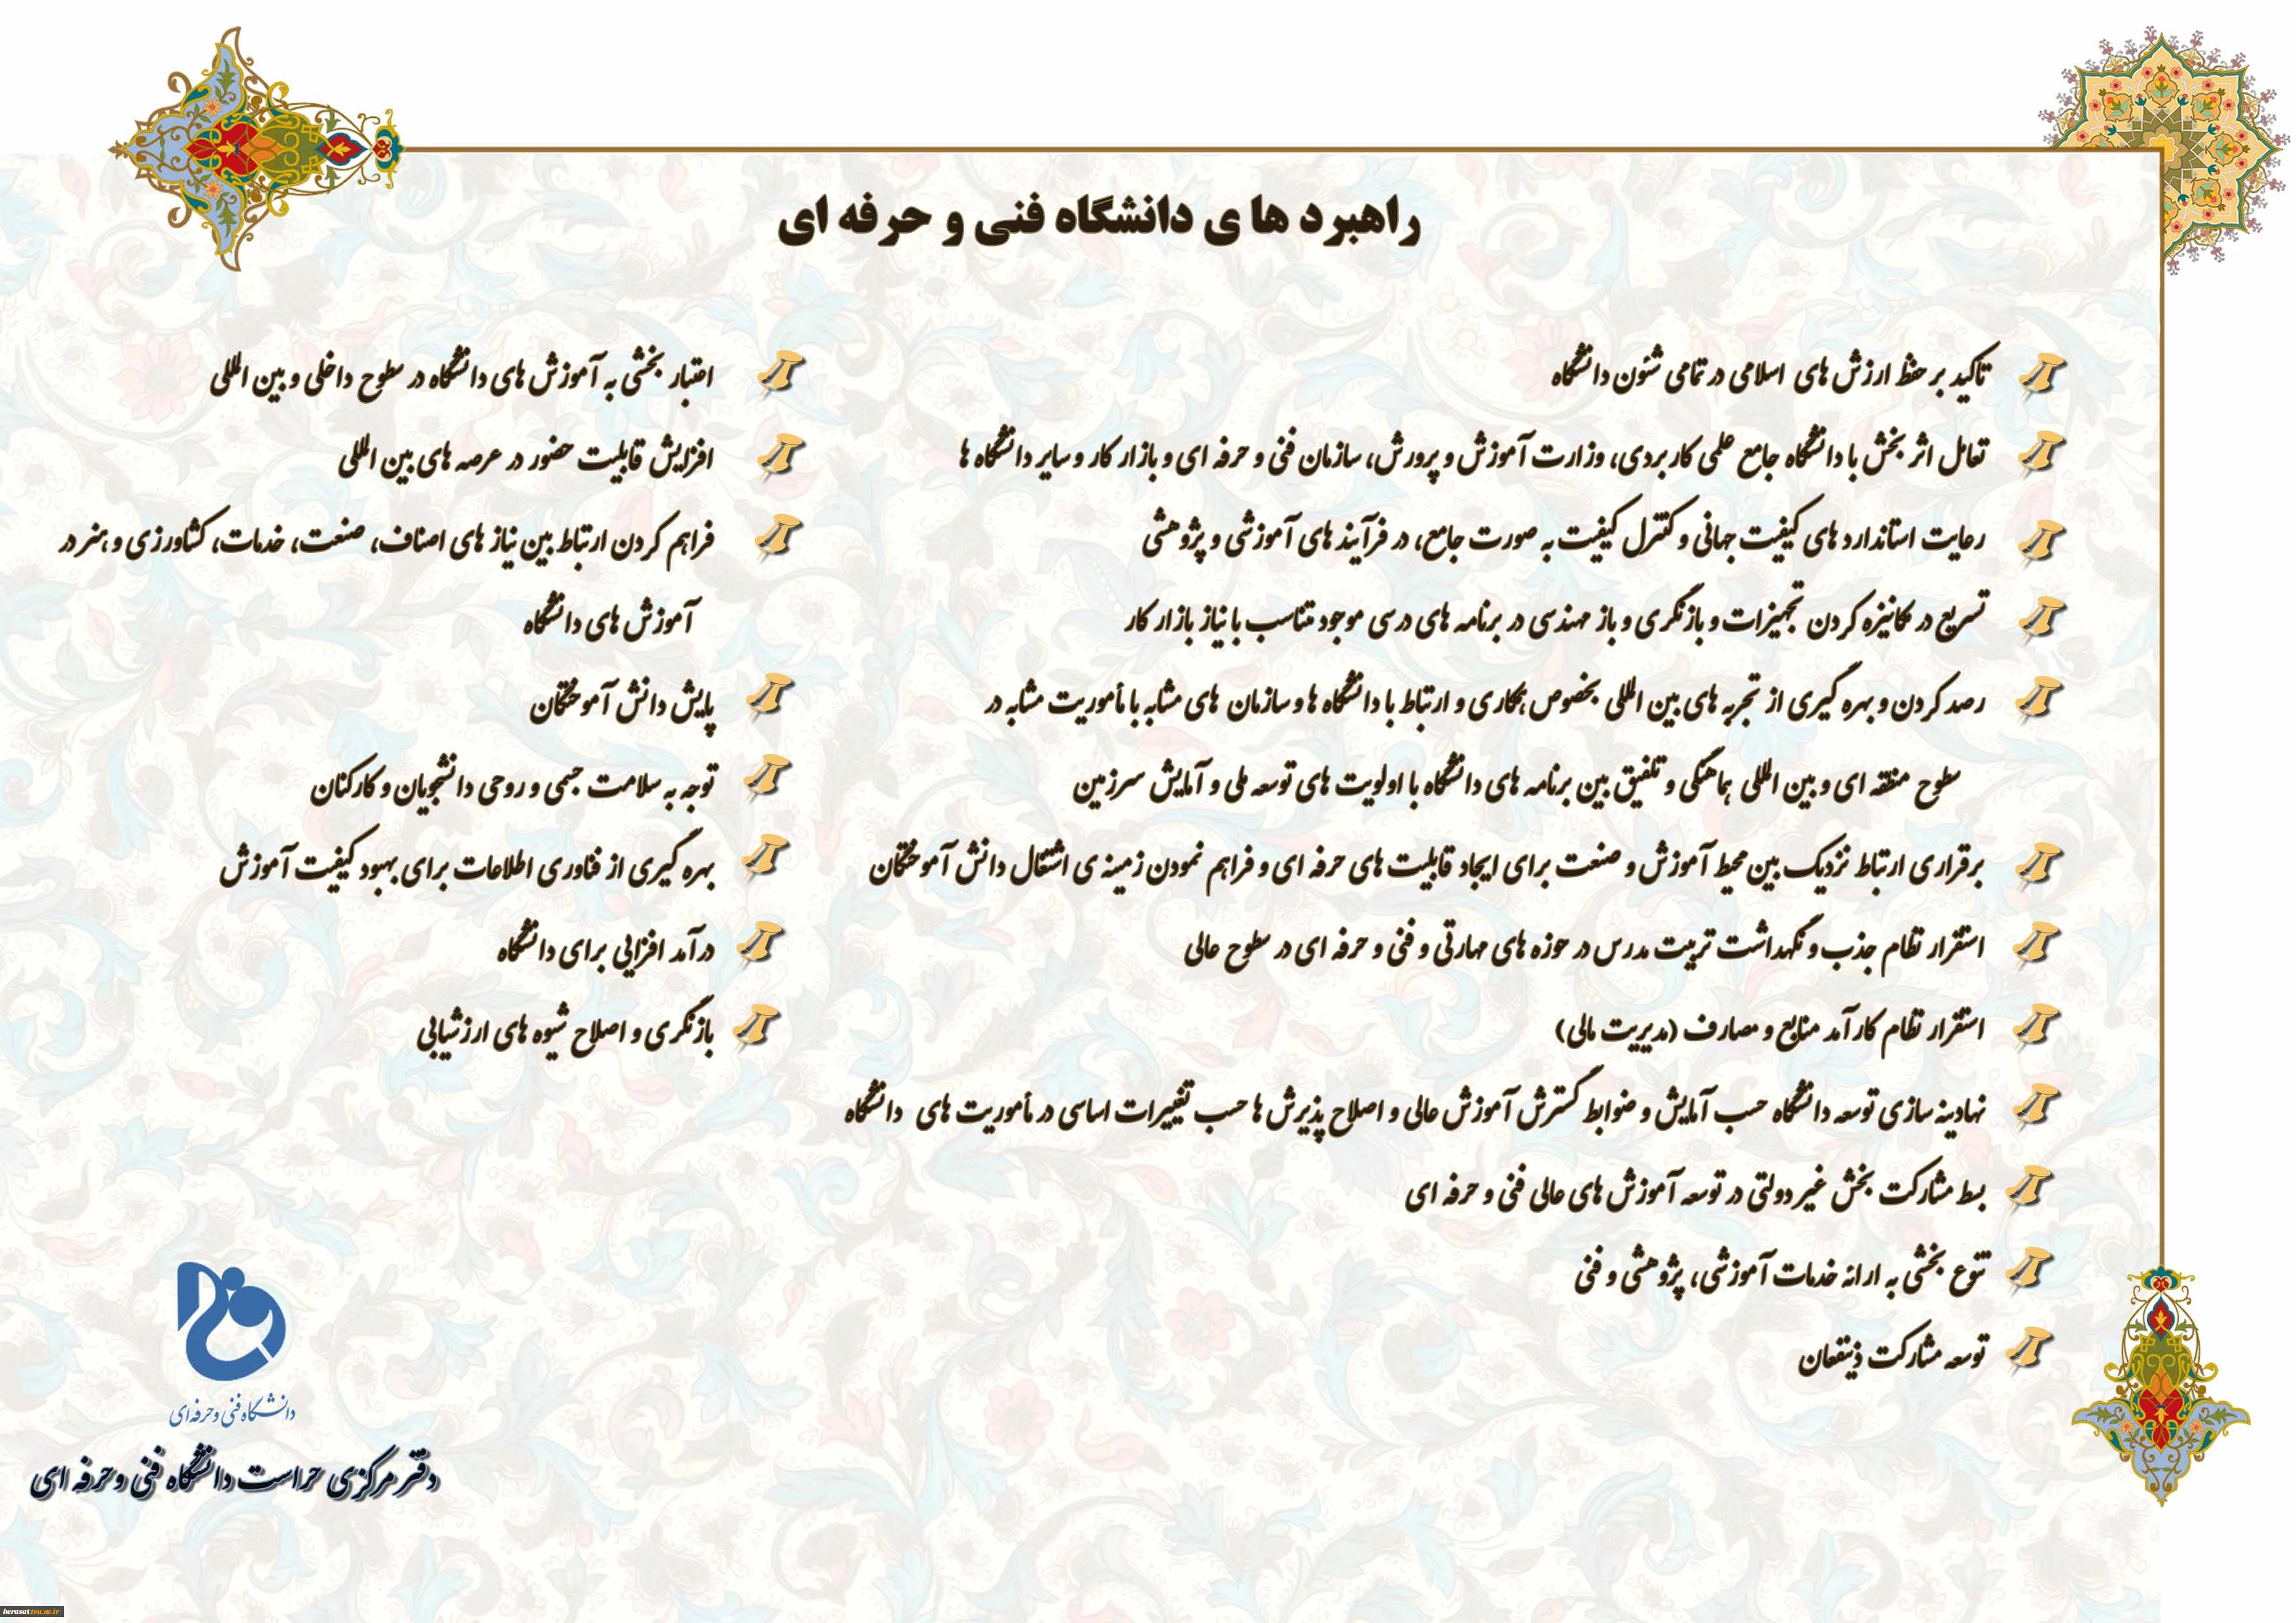 راهبرد ها ی دانشگاه فنی و حرفه ای
تاکید بر حفظ ارزش های اسلامی در تمامی شئون دانشگاه
تعامل اثر بخش با دانشگاه جامع علمی کاربردی، وزارت آموزش و پرورش، سازمان فنی و حرفه ای و بازار کار و سایر دانشگاه ها
رعایت استاندارد های کیفیت جهانی و کنترل کیفیت به صورت جامع، در فرآیند های آموزشی و پژوهشی
تسریع در مکانیزه کردن تجهیزات و بازنگری و باز مهندسی در برنامه های درسی موجود متناسب با نیاز بازار کار
رصد کردن و بهره گیری از تجربه های بین المللی بخصوص همکاری و ارتباط با دانشگاه ها و سازمان های مشابه با مأموریت مشابه در
سطوح منطقه ای و بین المللی هماهنگی و تلفیق بین برنامه های دانشگاه با اولویت های توسعه ملی و آمایش سرزمین
برقراری ارتباط نزدیک بین محیط آموزش و صنعت برای ایجاد قابلیت های حرفه ای و فراهم نمودن زمینه ی اشتغال دانش آموختگان
استقرار نظام جذب و نگهداشت تربیت مدرس در حوزه های مهارتی و فنی و حرفه ای در سطوح عالی
استقرار نظام کارآمد منابع و مصارف (مدیریت مالی)
نهادینه سازی توسعه دانشگاه حسب آمایش و ضوابط گسترش آموزش عالی و اصلاح پذیرش ها حسب تغییرات اساسی در مأموریت های دانشگاه
بسط مشارکت بخش غیر دولتی در توسعه آموزش های عالی فنی و حرفه ای
تنوع بخشی به ارائه خدمات آموزشی، پژوهشی و فنی
توسعه مشارکت ذینفعان
اعتبار بخشی به آموزش های دانشگاه در سطوح داخلی و بین المللی
افزایش قابلیت حضور در عرصه های بین المللی
فراهم کردن ارتباط بین نیاز های اصناف، صنعت، خدمات، کشاورزی و هنر در
آموزش های دانشگاه
پایش دانش آموختگان
توجه به سلامت جسمی و روحی دانشجویان و کارکنان
بهره گیری از فناوری اطلاعات برای بهبود کیفیت آموزش
درآمد افزایی برای دانشگاه
بازنگری و اصلاح شیوه های ارزشیابی
دانشگاه فنی و حرفه‌ای
دفتر مرکزی حراست دانشگاه فنی و حرفه ای
herasat.tvu.ac.ir